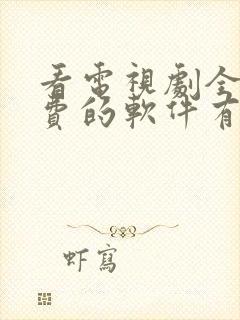 看電視劇全
費的軟件有
虾寫